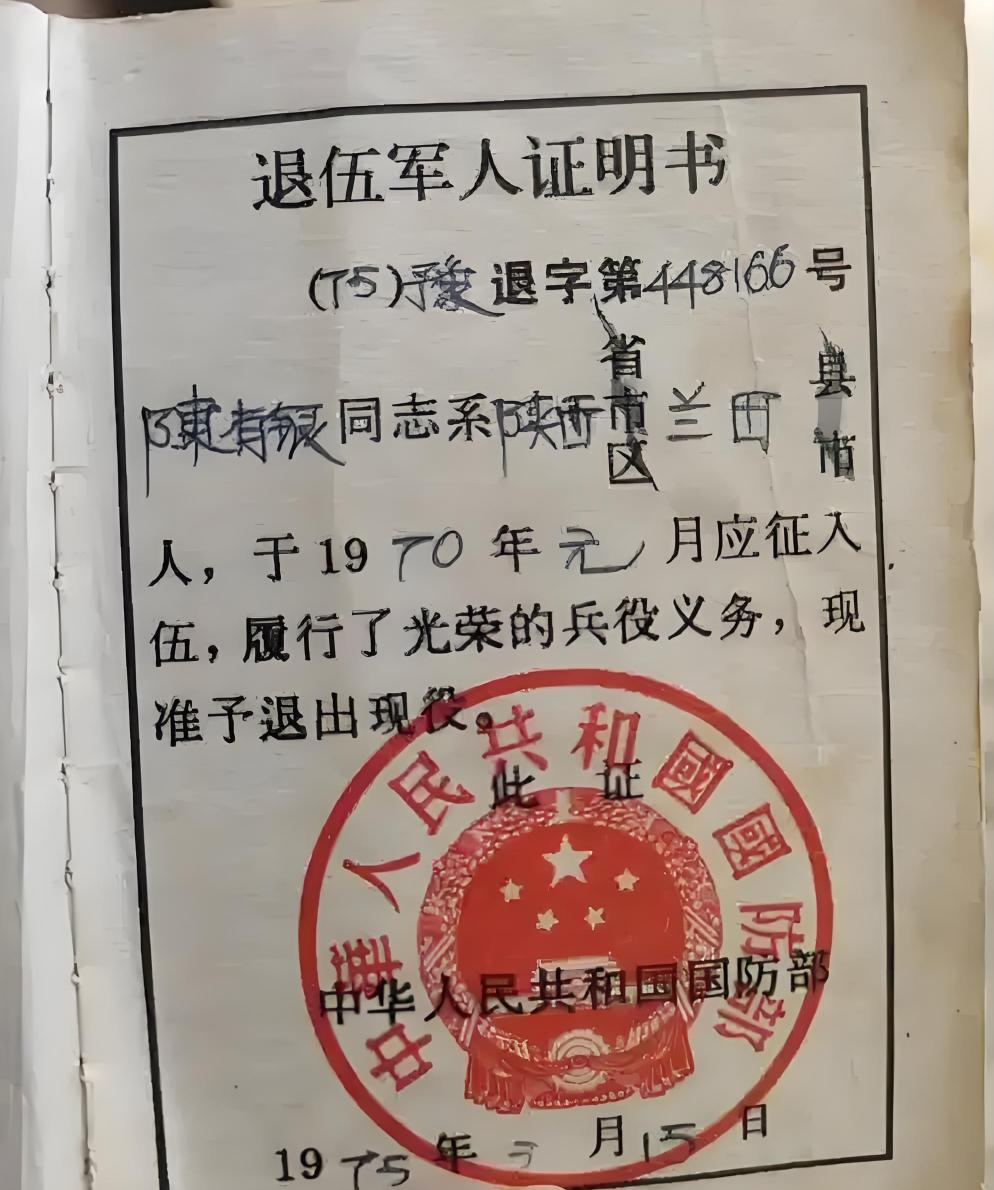 退伍军人证明书
(75)豫退字第448166号
省 县
陳有银同志系陕西市兰田
区 市
人，于1970年元月应征入
伍，履行了光荣的兵役义务，现
准予退出现役。
此证
中华人民共和国国防部
中華人民共和國國防部
1975年 月15日